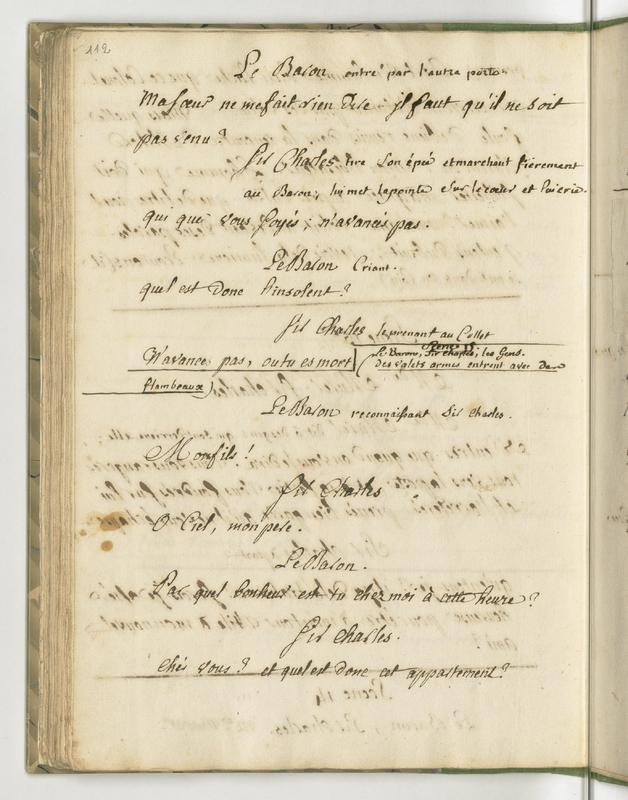 112
Le Baron entre par l'autre porte.
Ma sœur ne me fait rien dire il faut qu'il ne soit
pas venu ?
Sir Charles tire son épée et marchant fièrement
au Baron, lui met la pointe sur le cœur et lui crie.
qui que vous soyés ; n'avancés pas.
Le Baron Criant.
quel est donc l'insolent ?
Sir Charles le prenant au Collet
N'avance pas, ou tu es mort
Scene 15
(Le Baron, Sir Charles, les Gens.
des valets armés entrent avec des
flambeaux)
Le Baron reconnaissant Sir Charles.
Mon fils !
Sir Charles
O Ciel, mon pere.
Le Baron.
Par quel bonheur es tu chez moi à cette heure ?
Sir Charles.
chés vous ? et quel est donc cet appartement ?